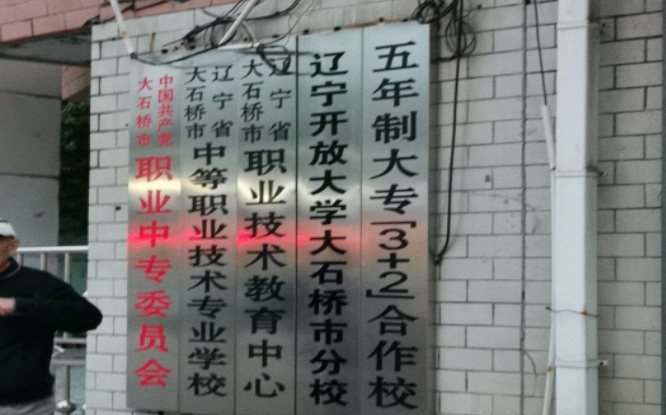 中国共产党
大石桥市
职业中专委员会
辽宁省
大石桥市
中等职业技术专业学校
辽宁省
大石桥市
职业技术教育中心
辽宁开放大学大石桥市分校
五年制大专「3+2」合作校